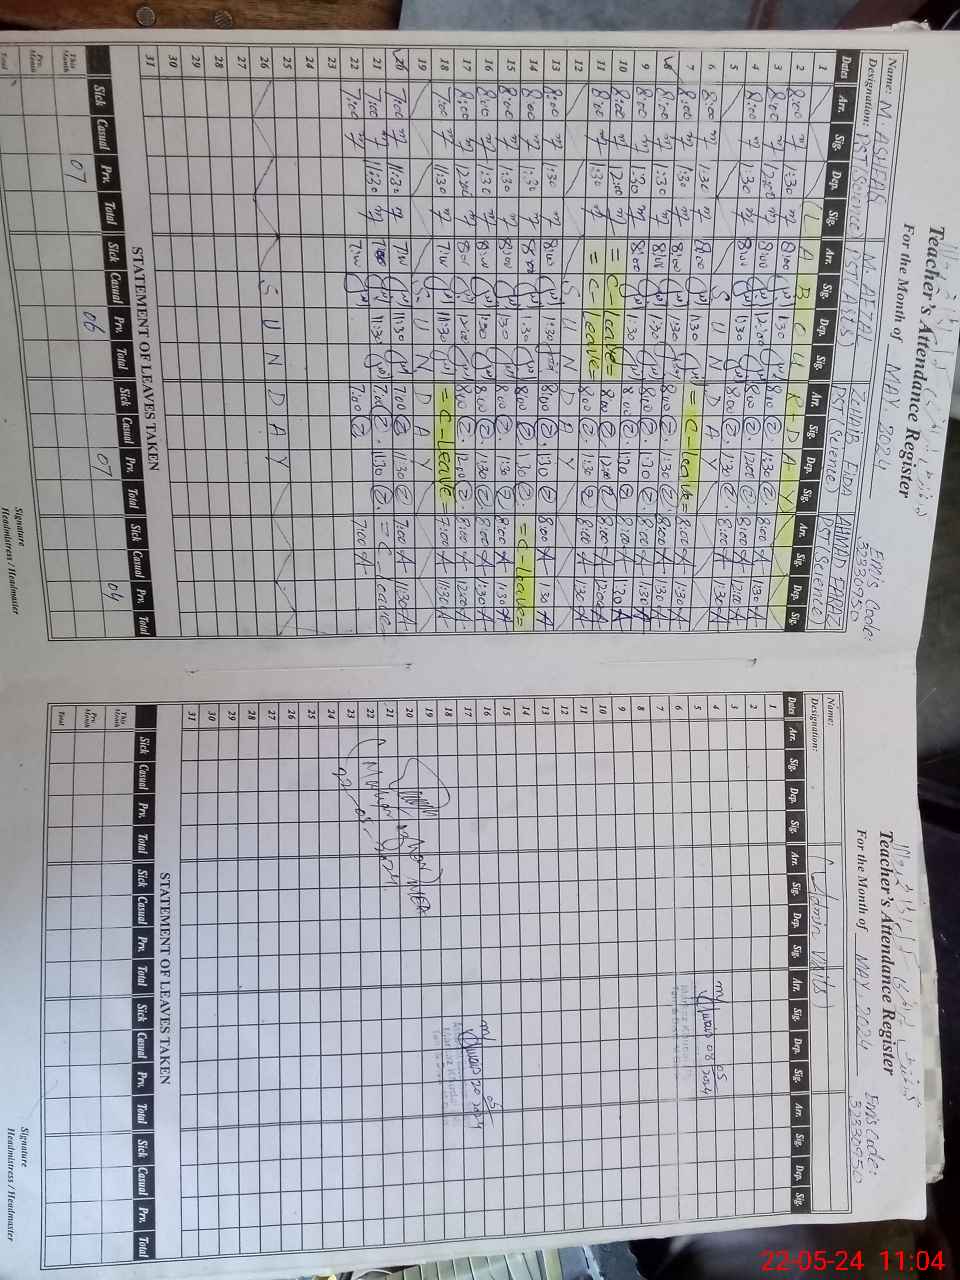 Teacher's Attendance Register
For the Month of MAY 2024
Emis Code: 32330950
Name: M. ASHFAQ M. AFZAL ZOHAIB FIDA AHMAD FARAZ
Designation: PST (Science) PST ARTS PST (Science) PST (Science)
Dates Arr. Sig. Dep. Sig. Arr. Sig. Dep. Sig. Arr. Sig. Dep. Sig. Arr. Sig. Dep. Sig.
1 L A B O U R - D A Y
2 8:00 1:30 8:00 1:30 8:00 1:30 8:00 1:30
3 8:00 12:00 8:00 12:00 8:00 12:00 8:00 12:00
4 8:00 1:30 8:00 1:30 8:00 1:30 8:00 1:30
5 S U N D A Y
6 8:00 1:30 8:00 1:30 = C - leave = 8:00 1:30
7 8:00 1:30 8:00 1:30 8:00 1:30
8 8:00 1:30 8:00 1:30 8:00 1:30 8:00 1:30
9 8:00 1:30 8:00 1:30 8:00 1:30 8:00 1:30
10 8:00 12:00 = C - leave = 8:00 12:00 8:00 12:00
11 8:00 1:30 = C - leave = 8:00 1:30 8:00 1:30
12 S U N D A Y
13 8:00 1:30 8:00 1:30 8:00 1:30 8:00 1:30
14 8:00 1:30 8:00 1:30 8:00 1:30 = C - leave =
15 8:00 1:30 8:00 1:30 8:00 1:30 8:00 1:30
16 8:00 1:30 8:00 1:30 8:00 1:30 8:00 1:30
17 8:00 12:00 8:00 12:00 8:00 12:00 8:00 12:00
18 7:00 11:30 7:00 11:30 = C - leave = 7:00 11:30
19 S U N D A Y
20 7:00 11:30 7:00 11:30 7:00 11:30 7:00 11:30
21 7:00 11:30 7:00 11:30 7:00 11:30 = C - leave =
22 7:00 7:00 7:00 7:00
23
24
25
26 S U N D A Y
27
28
29
30
31
STATEMENT OF LEAVES TAKEN
Sick Casual Prv. Total Sick Casual Prv. Total Sick Casual Prv. Total Sick Casual Prv. Total
This Month 07 06 07 04
Prv. Month
Total
Signature
Headmistress / Headmaster
Teacher's Attendance Register
For the Month of MAY, 2024
Emis Code: 32330950
Name: (Admin Visits)
Designation:
Dates Arr. Sig. Dep. Sig. Arr. Sig. Dep. Sig. Arr. Sig. Dep. Sig. Arr. Sig. Dep. Sig.
1
2
3
4
5
6
7
8
9
10
11
12
13
14
15
16
17
18
19
20
21
22
23
24
25
26
27
28
29
30
31
STATEMENT OF LEAVES TAKEN
Sick Casual Prv. Total Sick Casual Prv. Total Sick Casual Prv. Total Sick Casual Prv. Total
This Month
Prv. Month
Total
Signature
Headmistress / Headmaster
22-05-24 11:04